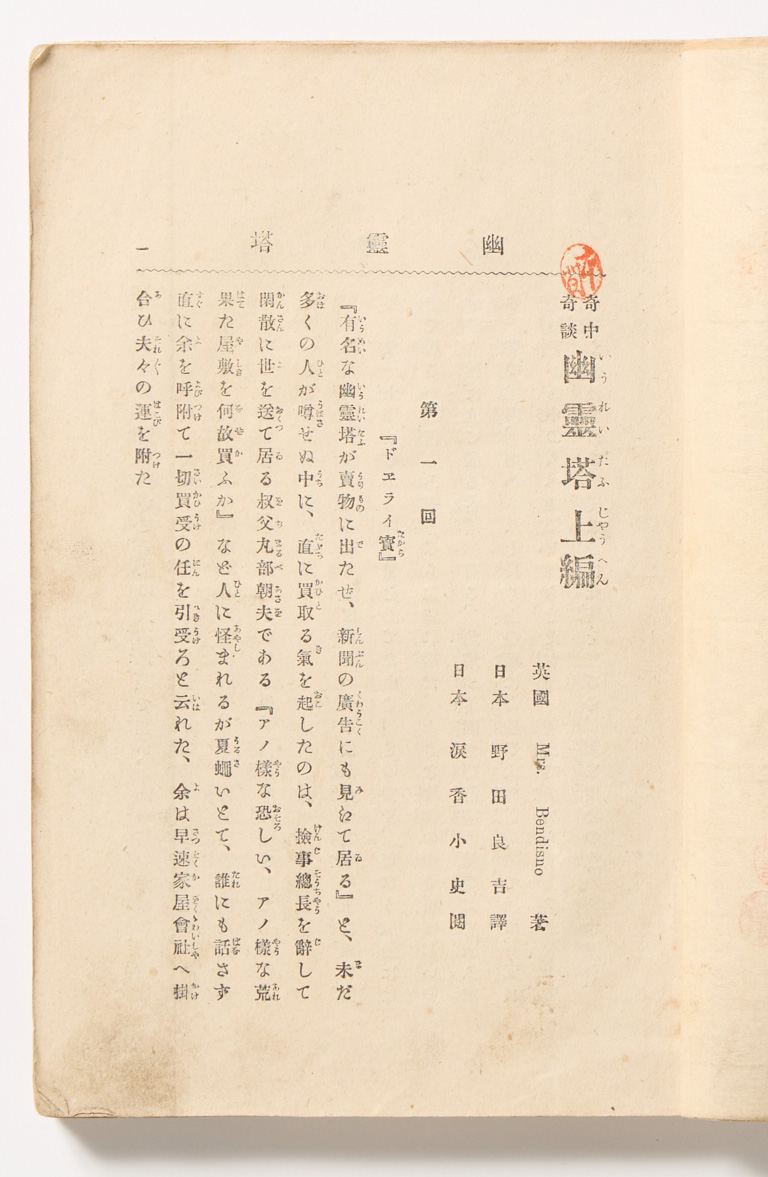 幽靈塔
一
奇中奇談 幽靈塔 上編
英國 Mrs. Bendisno 著
日本 野田良吉 譯
日本 淚香小史 閱
第一回
『ドエライ寳』
『有名な幽靈塔が賣物に出たぜ、新聞の廣告にも見えて居る』と、未だ
多くの人が噂せぬ中に、直に買取る氣を起したのは、撿事總長を辭して
閑散に世を送て居る叔父丸部朝夫である『アノ樣な恐しい、アノ樣な荒
果た屋敷を何故買ふか』など人に怪まれるが夏蠅いとて、誰にも話さず
直に余を呼附て一切買受の任を引受ろと云れた、余は早速家屋會社へ掛
合ひ夫々の運を附た